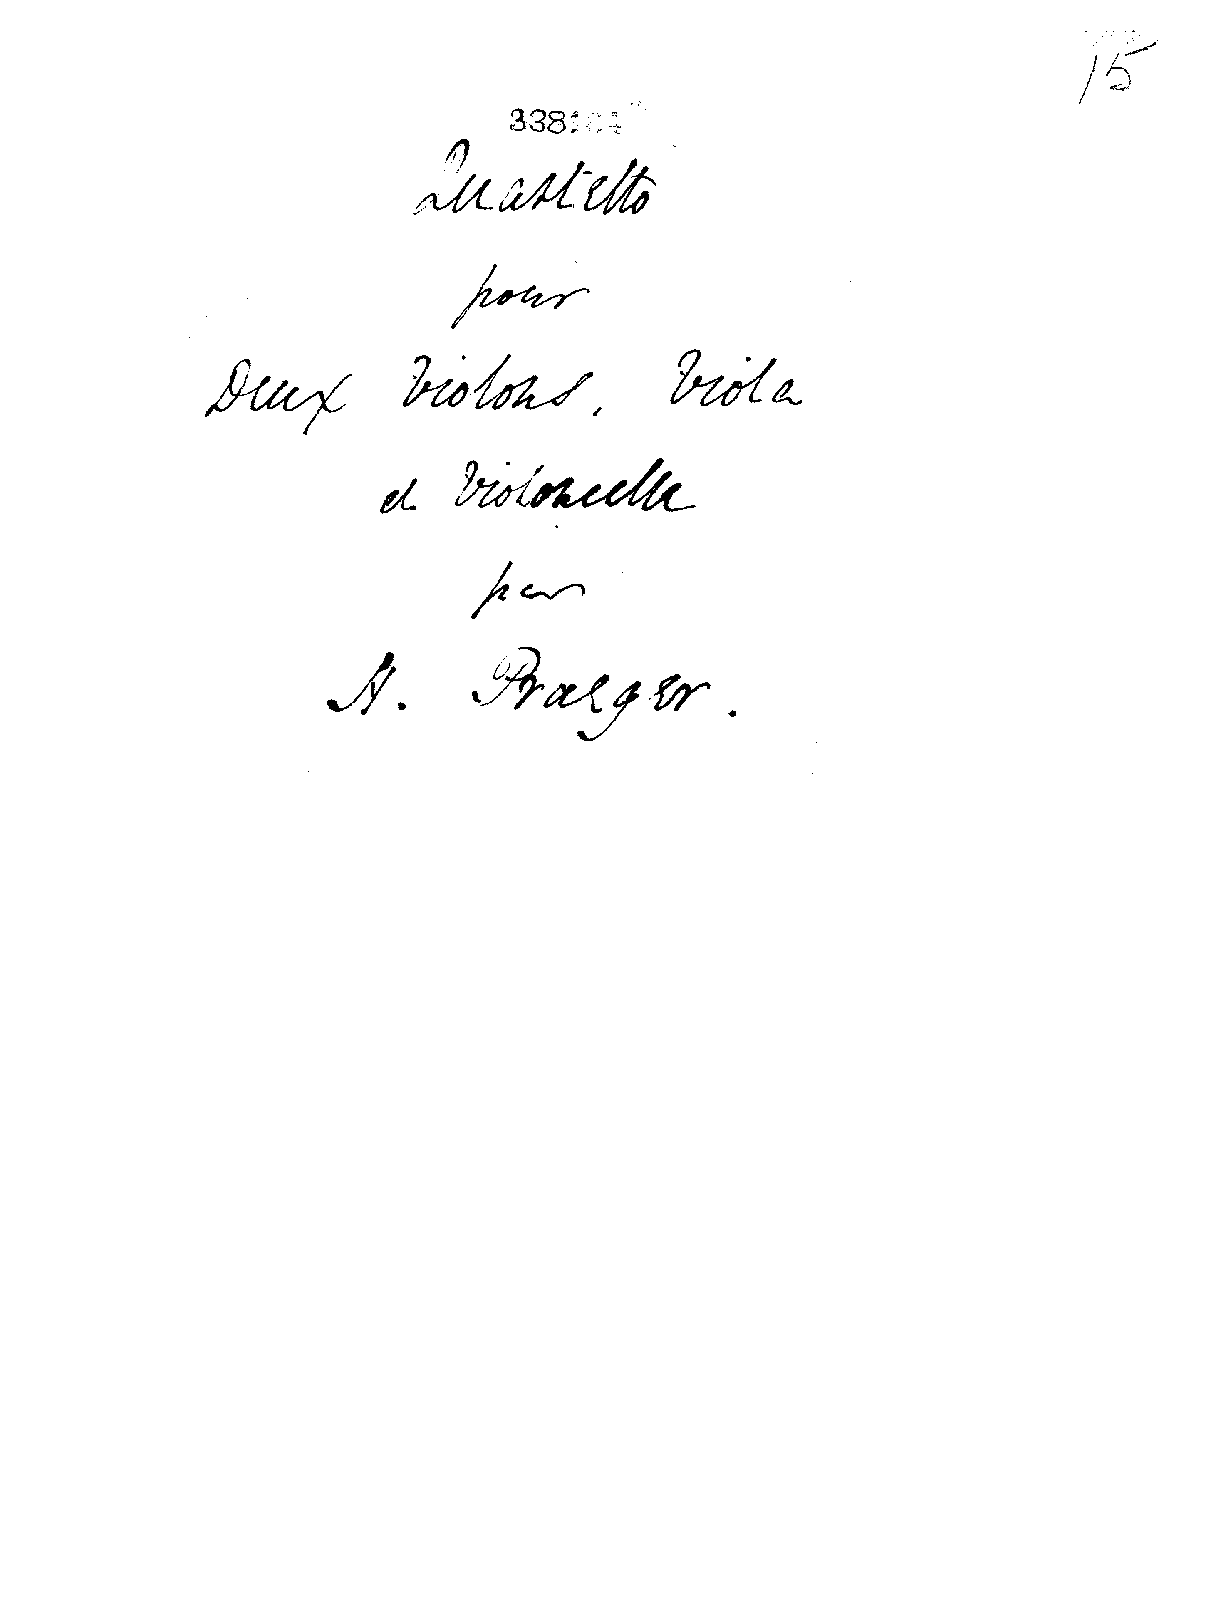 15
Quartetto
pour
Deux Violons, Viola
et Violoncelle
par
H. Praeger.